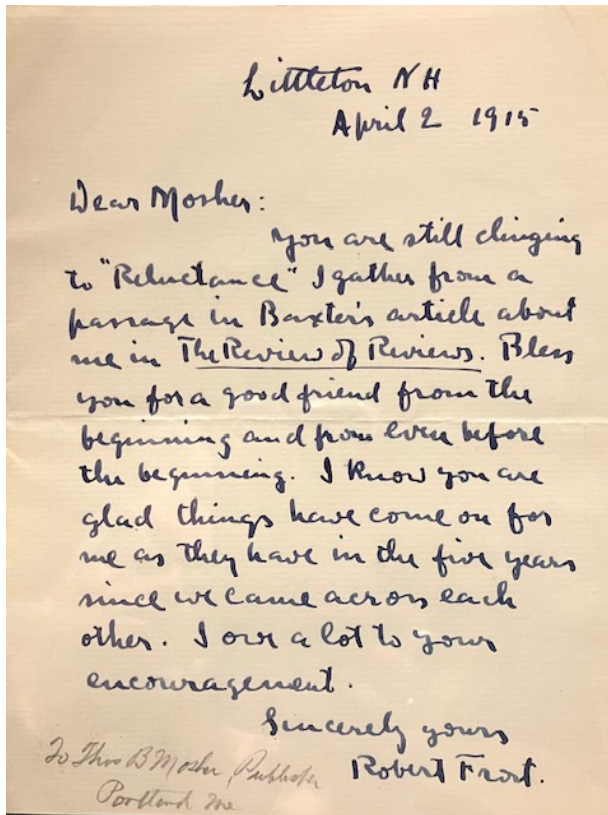 Littleton NH
April 2 1915
Dear Mosher:
You are still clinging
to "Reluctance" I gather from a
passage in Baxter's article about
me in The Review of Reviews. Bless
you for a good friend from the
beginning and from even before
the beginning. I know you are
glad things have come on for
me as they have in the five years
since we came across each
other. I owe a lot to your
encouragement.
Sincerely yours
Robert Frost.
To Thos B Mosher, Publisher
Portland Me